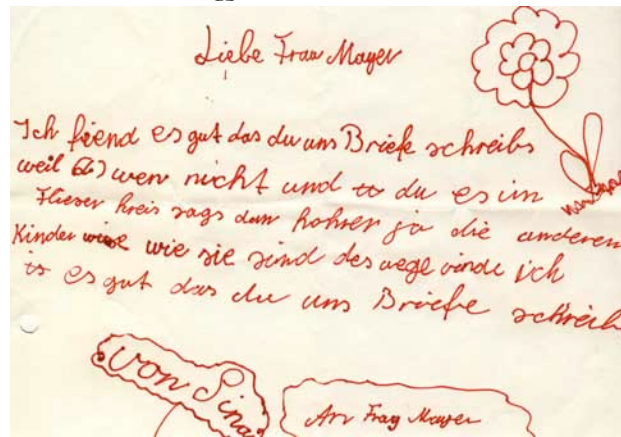 Liebe Frau Mayer
Ich fiend es gut das du uns Briefe schreibs
weil wen nicht und du es im
Flieser kreis sags dan hohrer ja die anderen
Kinder wie sie sind des wege vinde ich
es gut das du uns Briefe schreib
von Sina
An Frau Mayer